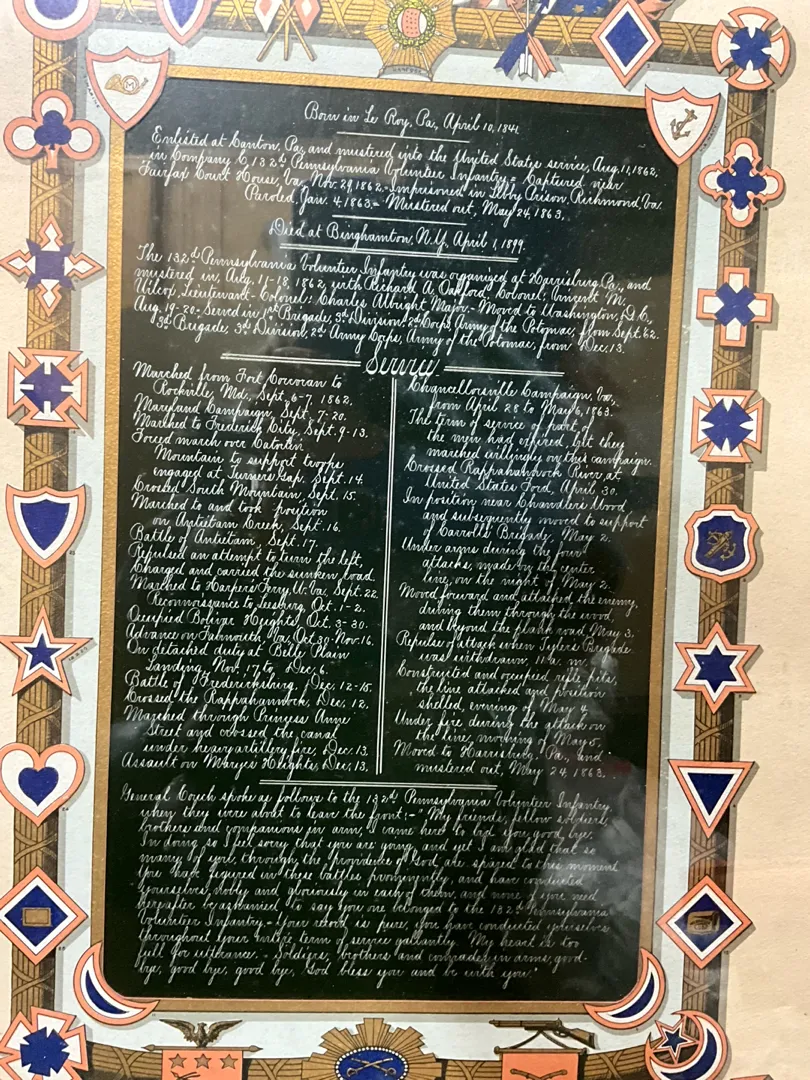 Born in Le Roy, Pa., April 10, 1841.
Enlisted at Canton, Pa., and mustered into the United States service, Aug. 11, 1862,
in Company C, 132d Pennsylvania Volunteer Infantry = Captured near
Fairfax Court House, Va., Nov. 29, 1862.= Imprisoned in Libby Prison, Richmond, Va.
Paroled, Jan. 4, 1863.= Mustered out, May 24, 1863.
Died at Binghamton, N.Y., April 1, 1899.
The 132d Pennsylvania Volunteer Infantry was organized at Harrisburg, Pa., and
mustered in, Aug. 11-18, 1862, with Richard A. Oakford, Colonel; Vincent M.
Wilcox, Lieutenant-Colonel; Charles Albright Major.- Moved to Washington, D.C.,
Aug. 19-20. Served in 1st Brigade, 3d Division, 2d Corps, Army of the Potomac, from Sept. 62.
3d Brigade, 3d Division, 2d Army Corps, Army of the Potomac, from Dec. 13.
Service
Marched from Fort Corcoran to
Rockville, Md., Sept. 6-7, 1862.
Maryland Campaign, Sept. 7-20.
Marched to Frederick City, Sept. 9-13.
Forced march over Catoctin
Mountain to support troops
engaged at Turners Gap, Sept. 14.
Crossed South Mountain, Sept. 15.
Marched to and took position
on Antietam Creek, Sept. 16.
Battle of Antietam, Sept. 17.
Repulsed an attempt to turn the left,
Charged and carried the sunken road.
Marched to Harpers Ferry, W. Va., Sept. 22.
Reconnoissance to Leesburg, Oct. 1-2.
Occupied Bolivar Heights, Oct. 3-30.
Advance on Falmouth, Va., Oct. 30-Nov. 16.
On detached duty at Belle Plain
Landing, Nov. 17 to Dec. 6.
Battle of Fredericksburg, Dec. 12-15.
Crossed the Rappahannock, Dec. 12.
Marched through Princess Anne
Street and crossed the canal
under heavy artillery fire, Dec. 13.
Assault on Maryes Heights, Dec. 13.
Chancellorsville Campaign, Va.,
from April 28 to May 6, 1863.
The term of service of part of
the men had expired, but they
marched willingly on this campaign.
Crossed Rappahannock River at
United States Ford, April 30.
In position near Chandlers Wood
and subsequently moved to support
of Carrolls Brigade, May 2.
Under arms during the four
attacks, made by the center
line, on the night of May 2.
Moved forward and attacked the enemy,
during them through the wood,
and beyond the plank road, May 3.
Repulse of attack when Tylers Brigade
was withdrawn, 11 a. m.
Constructed and occupied rifle pits,
the line attacked and position
shelled, evening of May 4.
Under fire during the attack on
the line, morning of May 5.
Moved to Harrisburg, Pa., and
mustered out, May 24, 1863.
General Couch spoke as follows to the 132d Pennsylvania Volunteer Infantry,
when they were about to leave the front:-" My friends, fellow soldiers,
brothers and companions in arms, I came here to bid you good bye.
In doing so I feel sorry that you are going, and yet I am glad that so
many of you, through the providence of God, are spared to this moment.
You have figured in these battles prominently, and have conducted
yourselves, nobly and gloriously in each of them, and none of you need
hereafter be ashamed to say you one belonged to the 132d Pennsylvania
Volunteer Infantry.- Your record is pure, you have conducted yourselves
throughout your entire term of service gallantly. My heart is too
full for utterance. - Soldiers, brothers and comrades in arms, good-
bye, good bye, good bye, God bless you and be with you."